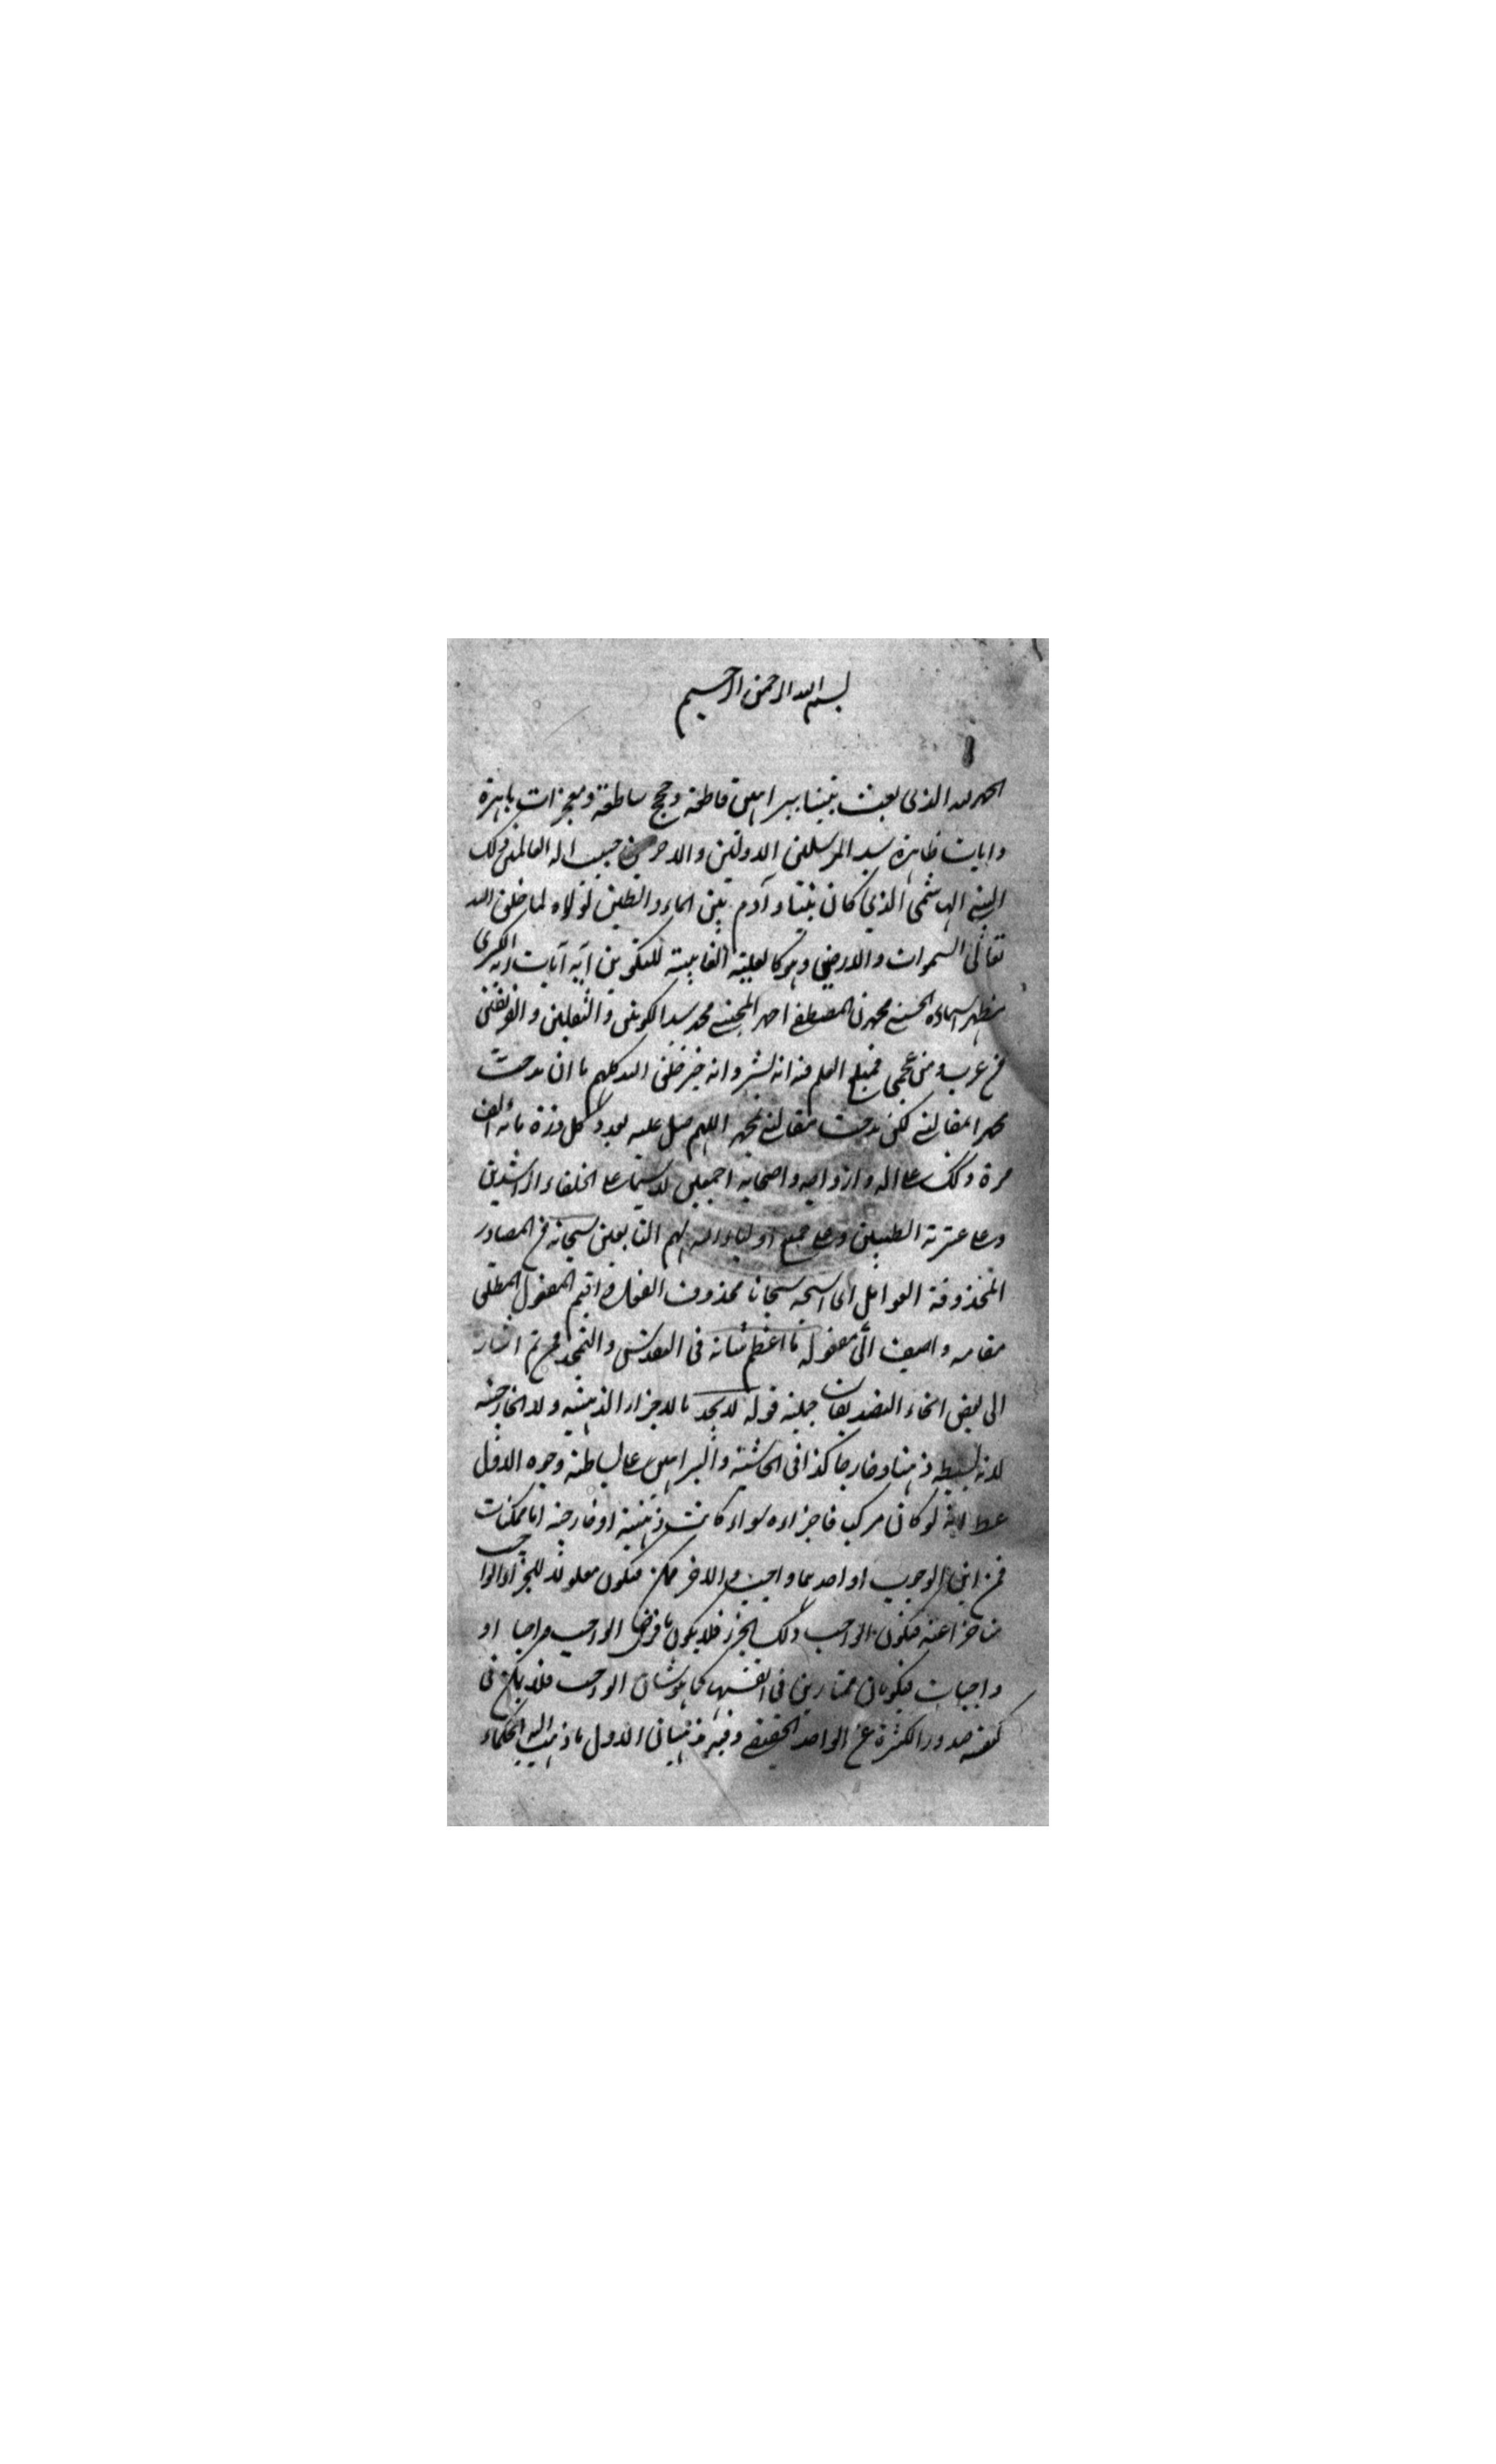 بسم الله الرحمن الرحيم
الحمد لله الذى بعث نبينا ببراهين قاطعة وحجج ساطعة ومعجزات باهرة
وايات ظاهرة سيد المرسلين الاولين والاخرين حبيب اله العالمين ذلك
النبي الهاشمى الذي كان نبيا و آدم بين الماء والطين لولاه لما خلق الله
تعالى السموات والارض وهو كالعلية الغايية للتكوين آية آيات ربه الكبرى
مظهر اسماءه الحسنى محمدن المصطفى احمد المجتبى محمد سيد الكونين والثقلين والفريقين
من عرب ومن عجمى فمبلغ العلم فيه انه بشر وانه خير خلق الله كلهم ما ان مدحت
محمدا بمقالتى لكن مدحت مقالتى بمحمد اللهم صل عليه بعدد كل ذرة مائة الف
مرة وكذلك على اله وازواجه واصحابه اجمعين لاسيما على الخلفاء الراشدين
وعلى عترته الطيبين وعلى جميع اولياء الله لهم التابعين سبحانه من المصادر
المحذوفة العوامل اى اسبحه سبحانا محذوف الفعل واقيم المفعول المطلق
مقامه واضيف الى مفعوله ما اعظم شانه فى التقديس والتمجيد ثم اشار
الى بعض انحاء التقديسات جملية قوله لا يحد بالاجزاء الذهنية ولا الخارجية
لانه بسيط ذهنا وخارجا كذا فى الحاشية والبراهين على بساطته وجوه الاول
انه لو كان مركبا فاجزاءه سواء كانت ذهنية او خارجية اما ممكنات
فمن اين الوجوب او احدهما واجب والاخر ممكن فيكون معلولا للجزء الواجب
متاخرا عنه فيكون الواجب ذلك الجزء فلا يكون ما فرض الواجب واجبا او
واجبات فيكونان ممتازين فى انفسهما كما هو شان الواجب فلا يكن فى
كيفية صدور الكثرة عن الواحد الحقيقى وفيه مذهبان الاول ما ذهب اليه الحكماء